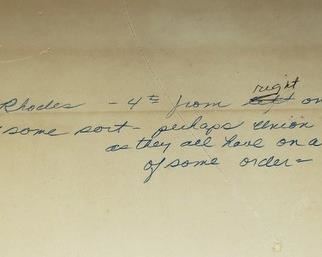 right
Rhodes - 4th from left on
some sort - perhaps Union
as they all have on a
of some order =